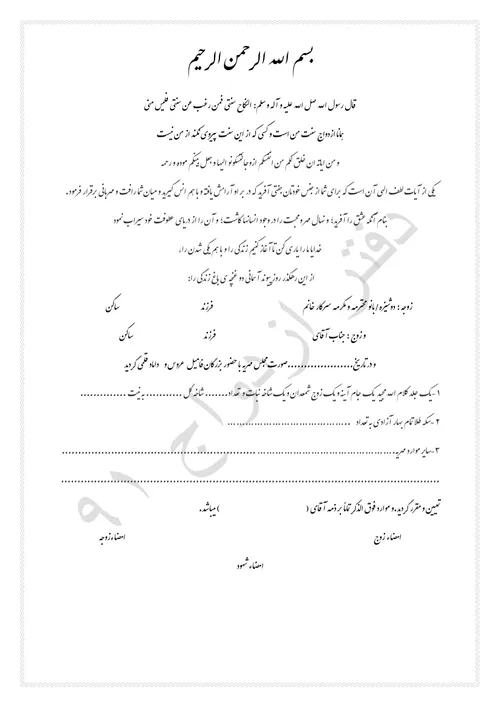 بسم الله الرحمن الرحیم
قال رسول الله صل الله علیه و آله وسلم: النکاح سنتی فمن رغب عن سنتی فلیس منی
همانا ازدواج سنت من است و کسی که از این سنت پیروی نکند از من نیست
و من ایاته ان خلق لکم من انفسکم ازواجا لتسکنو الیها و جعل بینکم موده و رحمه
یکی از آیات لطف الهی آن است که برای شما از جنس خودتان جفتی آفرید که در بر او آرامش یافته و با هم انس گیرید و میان شما رافت و مهربانی برقرار فرمود.
بنام آنکه عشق را آفرید؛ و نهال مهر و محبت را در وجود انسانها کاشت؛ و آن را از دریای عطوفت خود سیراب نمود
خدایا ما را یاری کن تا آغاز کنیم زندگی را و با هم یکی شدن را،
از این رهگذر روز پیوند آسمانی دو غنچه ی باغ زندگی را:
زوجه: دوشیزه/بانو محترمه و مکرمه سرکار خانم فرزند ساکن
و زوج: جناب آقای فرزند ساکن
و در تاریخ....................صورت مجلس مهریه با حضور بزرگان فامیل عروس و داماد قلمی گردید
۱-یک جلد کلام الله مجید یک جام آینه و یک زوج شمعدان و یک شاخه نبات و تعداد....... شاخه گل ........... به نیت ..............
۲-سکه طلا تمام بهار آزادی به تعداد .....................................
۳-سایر موارد مهریه....................................................................................................
....................................................................................................................
تعیین و مقرر گردید.و موارد فوق الذکر تماماً بر ذمه آقای ( ) میباشد.
امضاء زوج امضاء زوجه
امضاء شهود
دفتر ازدواج ۹۱